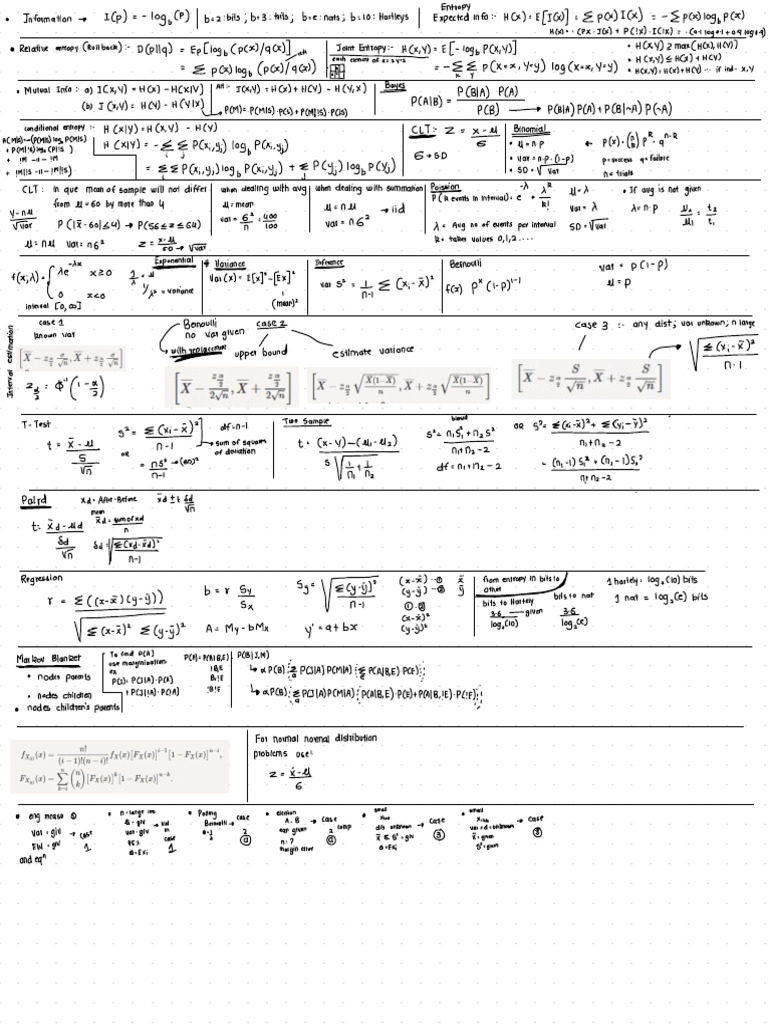 • Information → I(p) = -log_b(p) | b=2: bits ; b=3: trits ; b=e: nats ; b=10: Hartleys
Entropy
Expected Info:- H(X) = E[I(X)] = Σ p(x) I(x) = -Σ p(x) log_b p(x)
• Relative entropy (Rollback):- D(p||q) = E_p[log_b(p(x)/q(x)]
= Σ p(x) log_b (p(x)/q(x))
Joint Entropy:- H(X,Y) = E[-log_b P(X,Y)]
= -Σ Σ p(X=x, Y=y) log(X=x, Y=y)
• H(X,Y) ≥ max(H(X), H(Y))
• H(X,Y) ≤ H(X) + H(Y)
• H(X,Y) = H(X)+H(Y) -- if ind- X,Y
• Mutual Info:- a) I(X,Y) = H(X) - H(X|Y)
(b) I(X,Y) = H(Y) - H(Y|X)
Bayes
P(A|B) = P(B|A) P(A)
P(B) → P(B|A) P(A) + P(B|~A) P(~A)
conditional entropy:- H(X|Y) = H(X,Y) - H(Y)
H(X|Y) = -Σ Σ P(xi,yj) log_b P(xi,yj)
= ΣΣ P(xi,yj) log_b P(xi,yj) + Σ P(yj) log_b P(yj)
CLT:- Z = x-μ
σ
σ → SD
Binomial
• μ = n·p
• var = n·p·(1-p)
• SD = √var
← P(x) = (n R) p^R · q^n-R
p=success q=failure
n = trials
CLT: In que mean of sample will not differ
from μ=60 by more than 4
P(|x̄-60|≤4) → P(56≤z≤64)
μ=nμ var=nσ² z = x-μ
SD → √var
when dealing with avg
μ=mean
var= σ²/n = 400/100
when dealing with summation
μ=nμ → iid
var=nσ²
Poission
P(R events in interval) = e^-λ λ^R
R!
λ = Avg no of events per interval
R = taken values 0,1,2....
μ=λ
var=λ
SD=√var
• If avg is not given
λ = n·p
μ₂/μ₁ = t₂/t₁
Exponential
f(x;λ) = { λe^-λx x≥0
0 x<0
interval [0,∞]
1/λ = μ
1/λ² = variance
Variance
Var(X) = E[X]² - [EX]²
(mean)²
Inference
var S² = 1/n-1 Σ(Xi-X̄)²
Bernoulli
f(x) p^x (1-p)^1-1
var = p(1-p)
μ=p
Interval estimation
case 1
known var
[X̄ - z_α/2 σ/√n, X̄ + z_α/2 σ/√n]
z_α/2 = Φ⁻¹(1-α/2)
Bernoulli
no var given
case 2
with replacement
upper bound
estimate variance
[X̄ - z_α/2 / 2√n, X̄ + z_α/2 / 2√n]
[X̄ - z_α/2 √X̄(1-X̄)/n, X̄ + z_α/2 √X̄(1-X̄)/n]
case 3 :- any dist; var unknown; n large
[X̄ - z_α/2 S/√n, X̄ + z_α/2 S/√n]
√Σ(xi-x̄)²
n-1
T-Test
t = X̄-μ
S/√n
S² = Σ(xi-x̄)²
n-1
OR
df=n-1
→ sum of squares
of deviation
Two Sample
t = (x-y)-(μ₁-μ₂)
S√1/n₁+1/n₂
S² = n₁S₁²+n₂S²
n₁+n₂-2
df = n₁+n₂-2
OR S² = Σ(xi-x̄)²+Σ(yi-ȳ)²
n₁+n₂-2
= (n₁-1)S₁²+(n₂-1)S₂²
n₁+n₂-2
Paird
xd = After-Before
x̄d ± t δd/√n
mean
x̄d = sum of xd
n
t = x̄d-μd
δd/√n
δd = √Σ(xd-x̄d)²
n-1
Regression
r = Σ((x-x̄)(y-ȳ))
√Σ(x-x̄)² Σ(y-ȳ)²
b = r Sy/Sx
A = My-bMx
Sy = √Σ(y-ȳ)²
n-1
y' = a+bx
(x-x̄) -- ① x̄
(y-ȳ) -- ② ȳ
①·②
(x-x̄)²
(y-ȳ)²
from entropy in bits to
other
bits to Hartley
3.6 → given
log₂(10)
bits to nat
3.6
log₂(e)
1 hartely = log₂(10) bits
1 nat = log₂(e) bits
Markov Blanket
• nodes parents
• nodes children
• nodes children's parents
To find P(A)
use marginalization
ex
P(J) = P(J|A)·P(A)
+P(J|!A)·P(!A)
P(A) = P(A|B,E)
!B,!E
P(B|J,M)
↳ αP(B) Σ P(J|A) P(M|A) Σ P(A|B,E)·P(E)
↳ αP(B) Σ P(J|A) P(M|A) P(A|B,E)·P(E)+P(A|B,!E)·P(!E)
f_X(i)(x) = n!/(i-1)!(n-i)! f_X(x)[F_X(x)]^i-1 [1-F_X(x)]^n-i,
F_X(i)(x) = Σ_k=i^n (n k)[F_X(x)]^k [1-F_X(x)]^n-k.
For normal normal distribution
problems use:
z = x̄-μ
σ
• eng measu
var = giv → case
1
and eqn
• Polling
Bernoulli → case
2
• election
A, B → case
eqn given 2
n=?
margin error
• dis unknown → case
③
• var = d = unknown → case
③
x̄ = given
S² = given